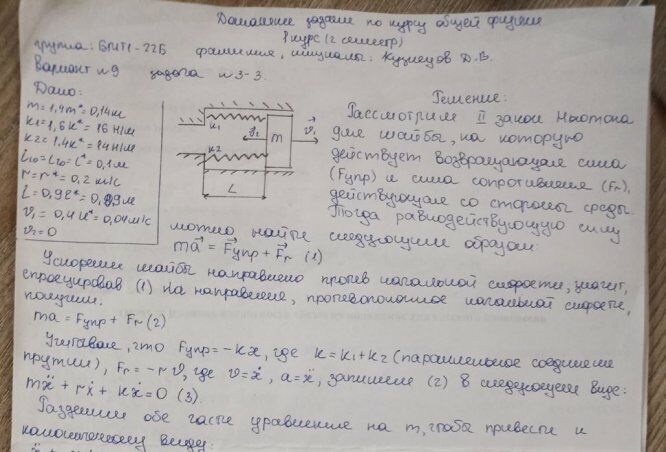 Домашнее задание по курсу общей физики
1 курс (2 семестр)
группа: БМТ1-22Б фамилия, инициалы: Кузнецов Д.В.
Вариант №9 задача №3-3.
Дано:
m = 1,4m* = 0,14 кг
k1 = 1,6k* = 16 Н/м
k2 = 1,4k* = 14 Н/м
L10 = L20 = L* = 0,1 м
r = r* = 0,2 кг/с
L = 0,9L* = 0,09 м
v1 = 0,4u* = 0,04 м/с
v2 = 0
k1
k2
v2
m
v1
L
Решение:
Рассмотрим II закон Ньютона
для шайбы, на которую
действует возвращающая сила
(Fупр) и сила сопротивления (Fr),
действующая со стороны среды.
Тогда равнодействующую силу
можно найти следующим образом:
ma = Fупр + Fr (1)
Ускорение шайбы направлено против начальной скорости, значит,
спроецировав (1) на направление, противоположное начальной скорости,
получим:
ma = Fупр + Fr (2)
Учитывая, что Fупр = -kx, где k = k1 + k2 (параллельное соединение
пружин), Fr = -rv, где v = ẋ, a = ẍ, запишем (2) в следующем виде:
mẍ + rẋ + kx = 0 (3).
Разделим обе части уравнения на m, чтобы привести к
каноническому виду: